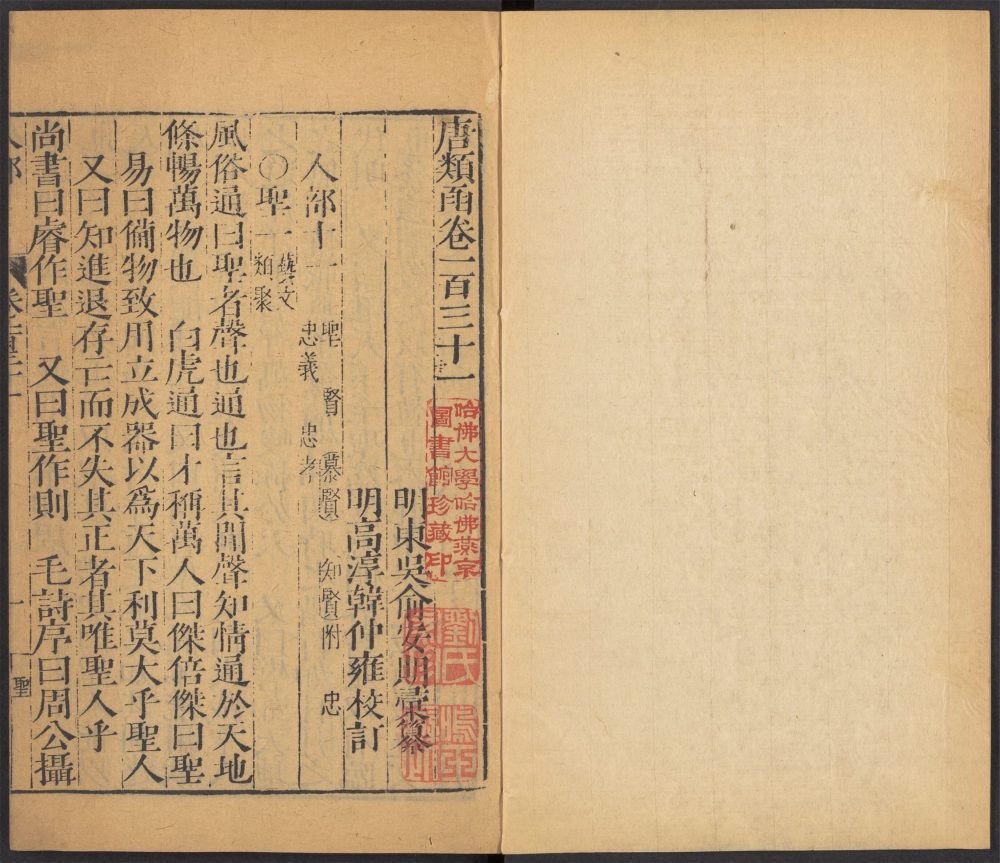 唐類函卷一百三十一
明東吳俞安期彙纂
明高淳韓仲雍校訂
人部十一 聖 賢 慕賢 知賢附 忠 忠義 忠孝
○聖一 藝文類聚
風俗通曰聖者聲也通也言其聞聲知情通於天地
條暢萬物也 白虎通曰才稱萬人曰傑倍傑曰聖
易曰備物致用立成器以爲天下利莫大乎聖人
又曰知進退存亡而不失其正者其唯聖人乎
尚書曰睿作聖 又曰聖作則 毛詩序曰周公攝
人部
一
聖
哈佛大學哈佛燕京
圖書館珍藏印
劉氏